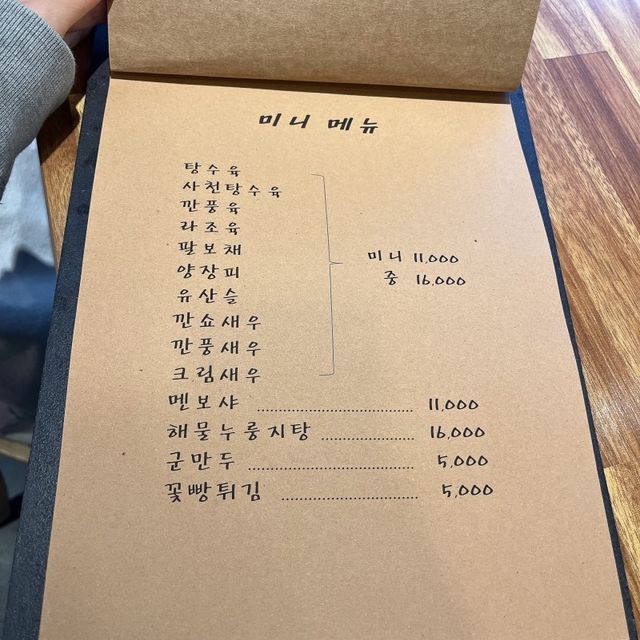 미니 메뉴
탕수육
사천탕수육
깐풍육
라조육
팔보채
양장피
유산슬
깐쇼새우
깐풍새우
크림새우
미니 11,000
중 16,000
멘보샤 11,000
해물누룽지탕 16,000
군만두 5,000
꽃빵튀김 5,000